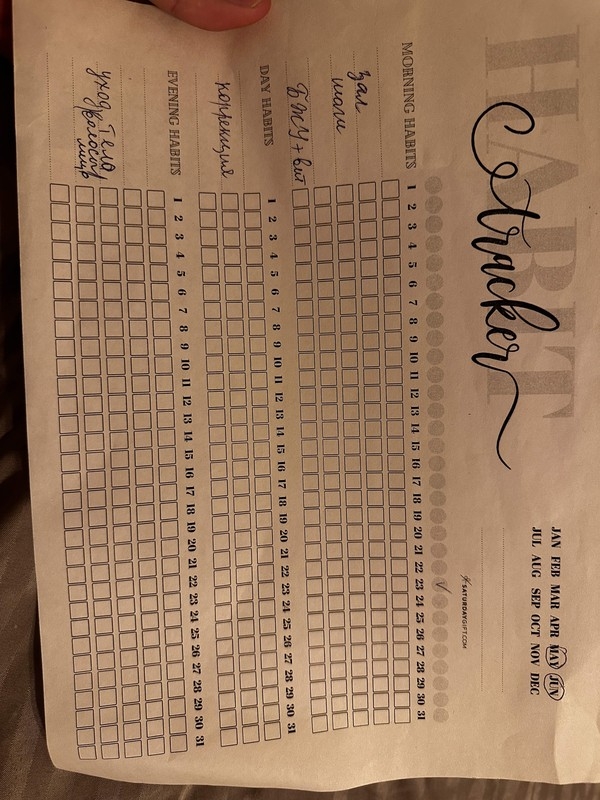 HABIT
tracker
JAN FEB MAR APR MAY JUN
JUL AUG SEP OCT NOV DEC
SATURDAYGIFT.COM
MORNING HABITS 1 2 3 4 5 6 7 8 9 10 11 12 13 14 15 16 17 18 19 20 21 22 23 24 25 26 27 28 29 30 31
зал
шаги
БЖУ + вит
DAY HABITS 1 2 3 4 5 6 7 8 9 10 11 12 13 14 15 16 17 18 19 20 21 22 23 24 25 26 27 28 29 30 31
коррекция
EVENING HABITS 1 2 3 4 5 6 7 8 9 10 11 12 13 14 15 16 17 18 19 20 21 22 23 24 25 26 27 28 29 30 31
уход тела
лицо